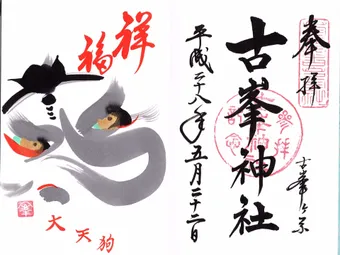 祥福
大天狗
奉拝
古峯ヶ原
古峯神社
平成二十八年五月二十二日